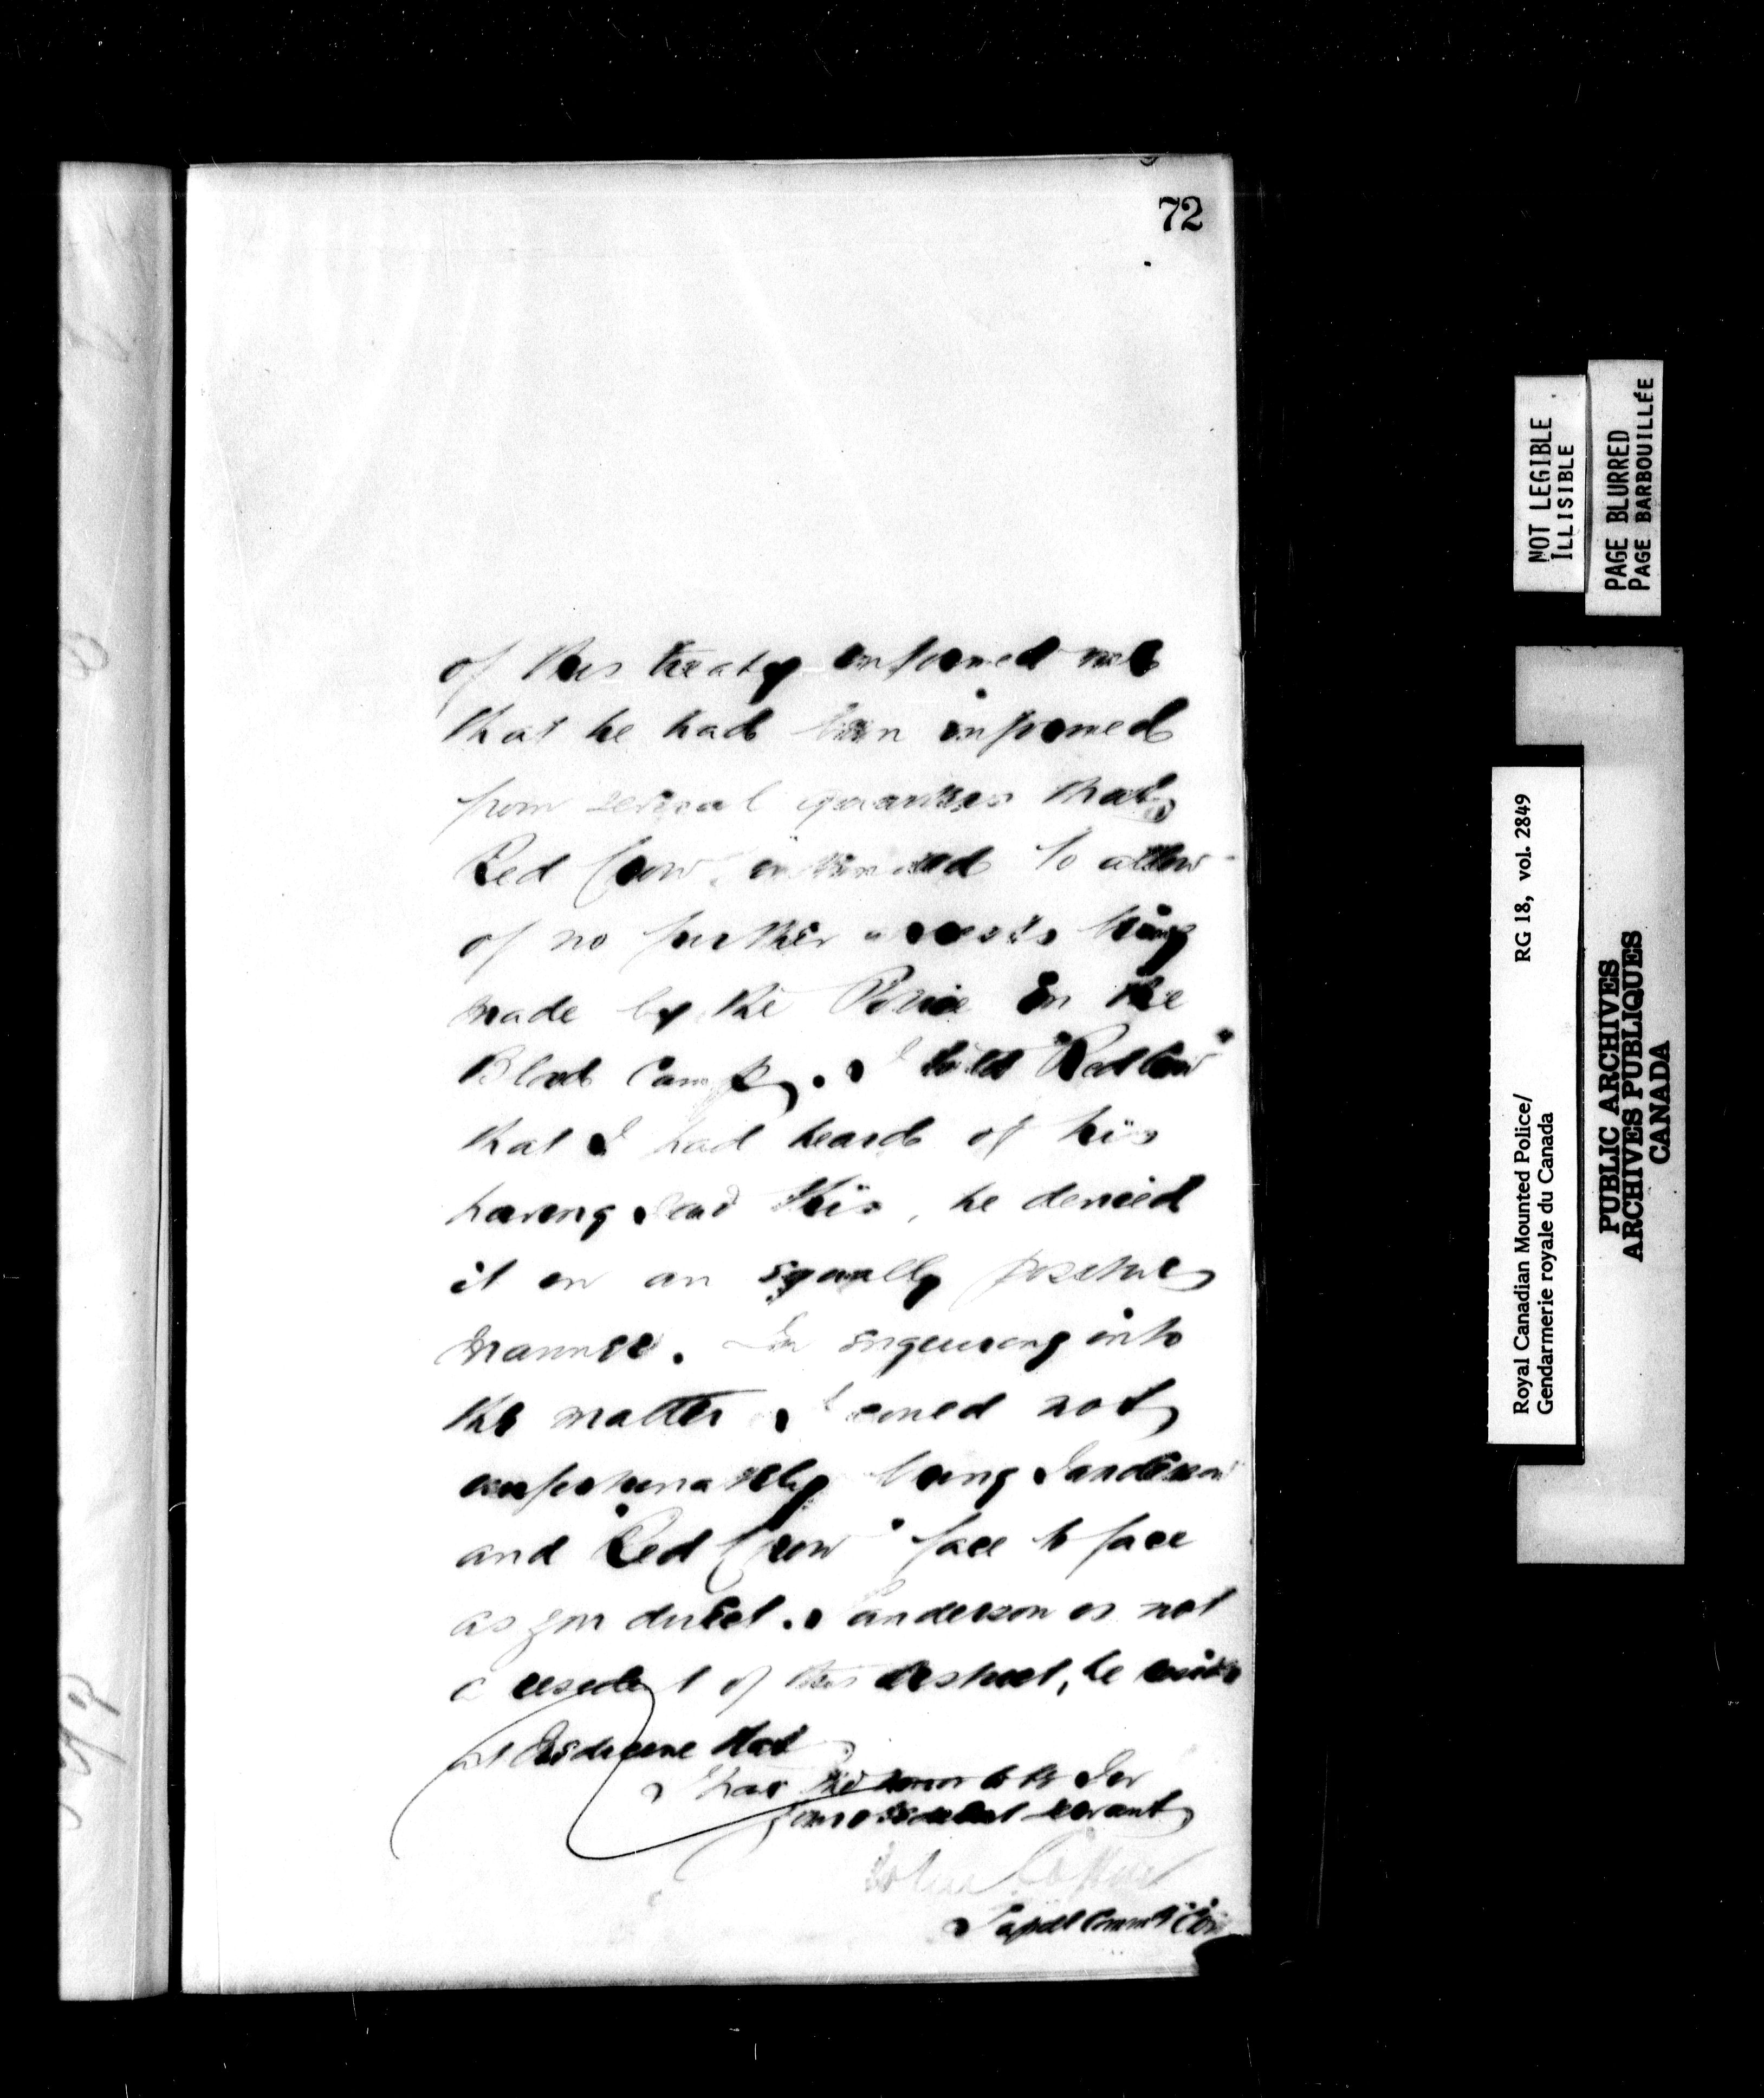 72
of this treaty informed me
that he had been informed
from several quarters that
Red Crow intended to allow
of no further arrests being
made by the Police in the
Blood Camp. I told "Red Crow"
that I had heard of his
having said this, he denied
it in an equally positive
manner. In enquiring into
the matter I cannot
unfortunately bring Sanderson
and "Red Crow" face to face
as you direct. Sanderson is not
a resident of this district, he
at Medicine Hat
I have the honor to be Sir
Your obedient servant
John Cotton
Supdt Commdg
NOT LEGIBLE
ILLISIBLE
PAGE BLURRED
PAGE BARBOUILLÉE
Royal Canadian Mounted Police/ RG 18, vol. 2849
Gendarmerie royale du Canada
PUBLIC ARCHIVES
ARCHIVES PUBLIQUES
CANADA